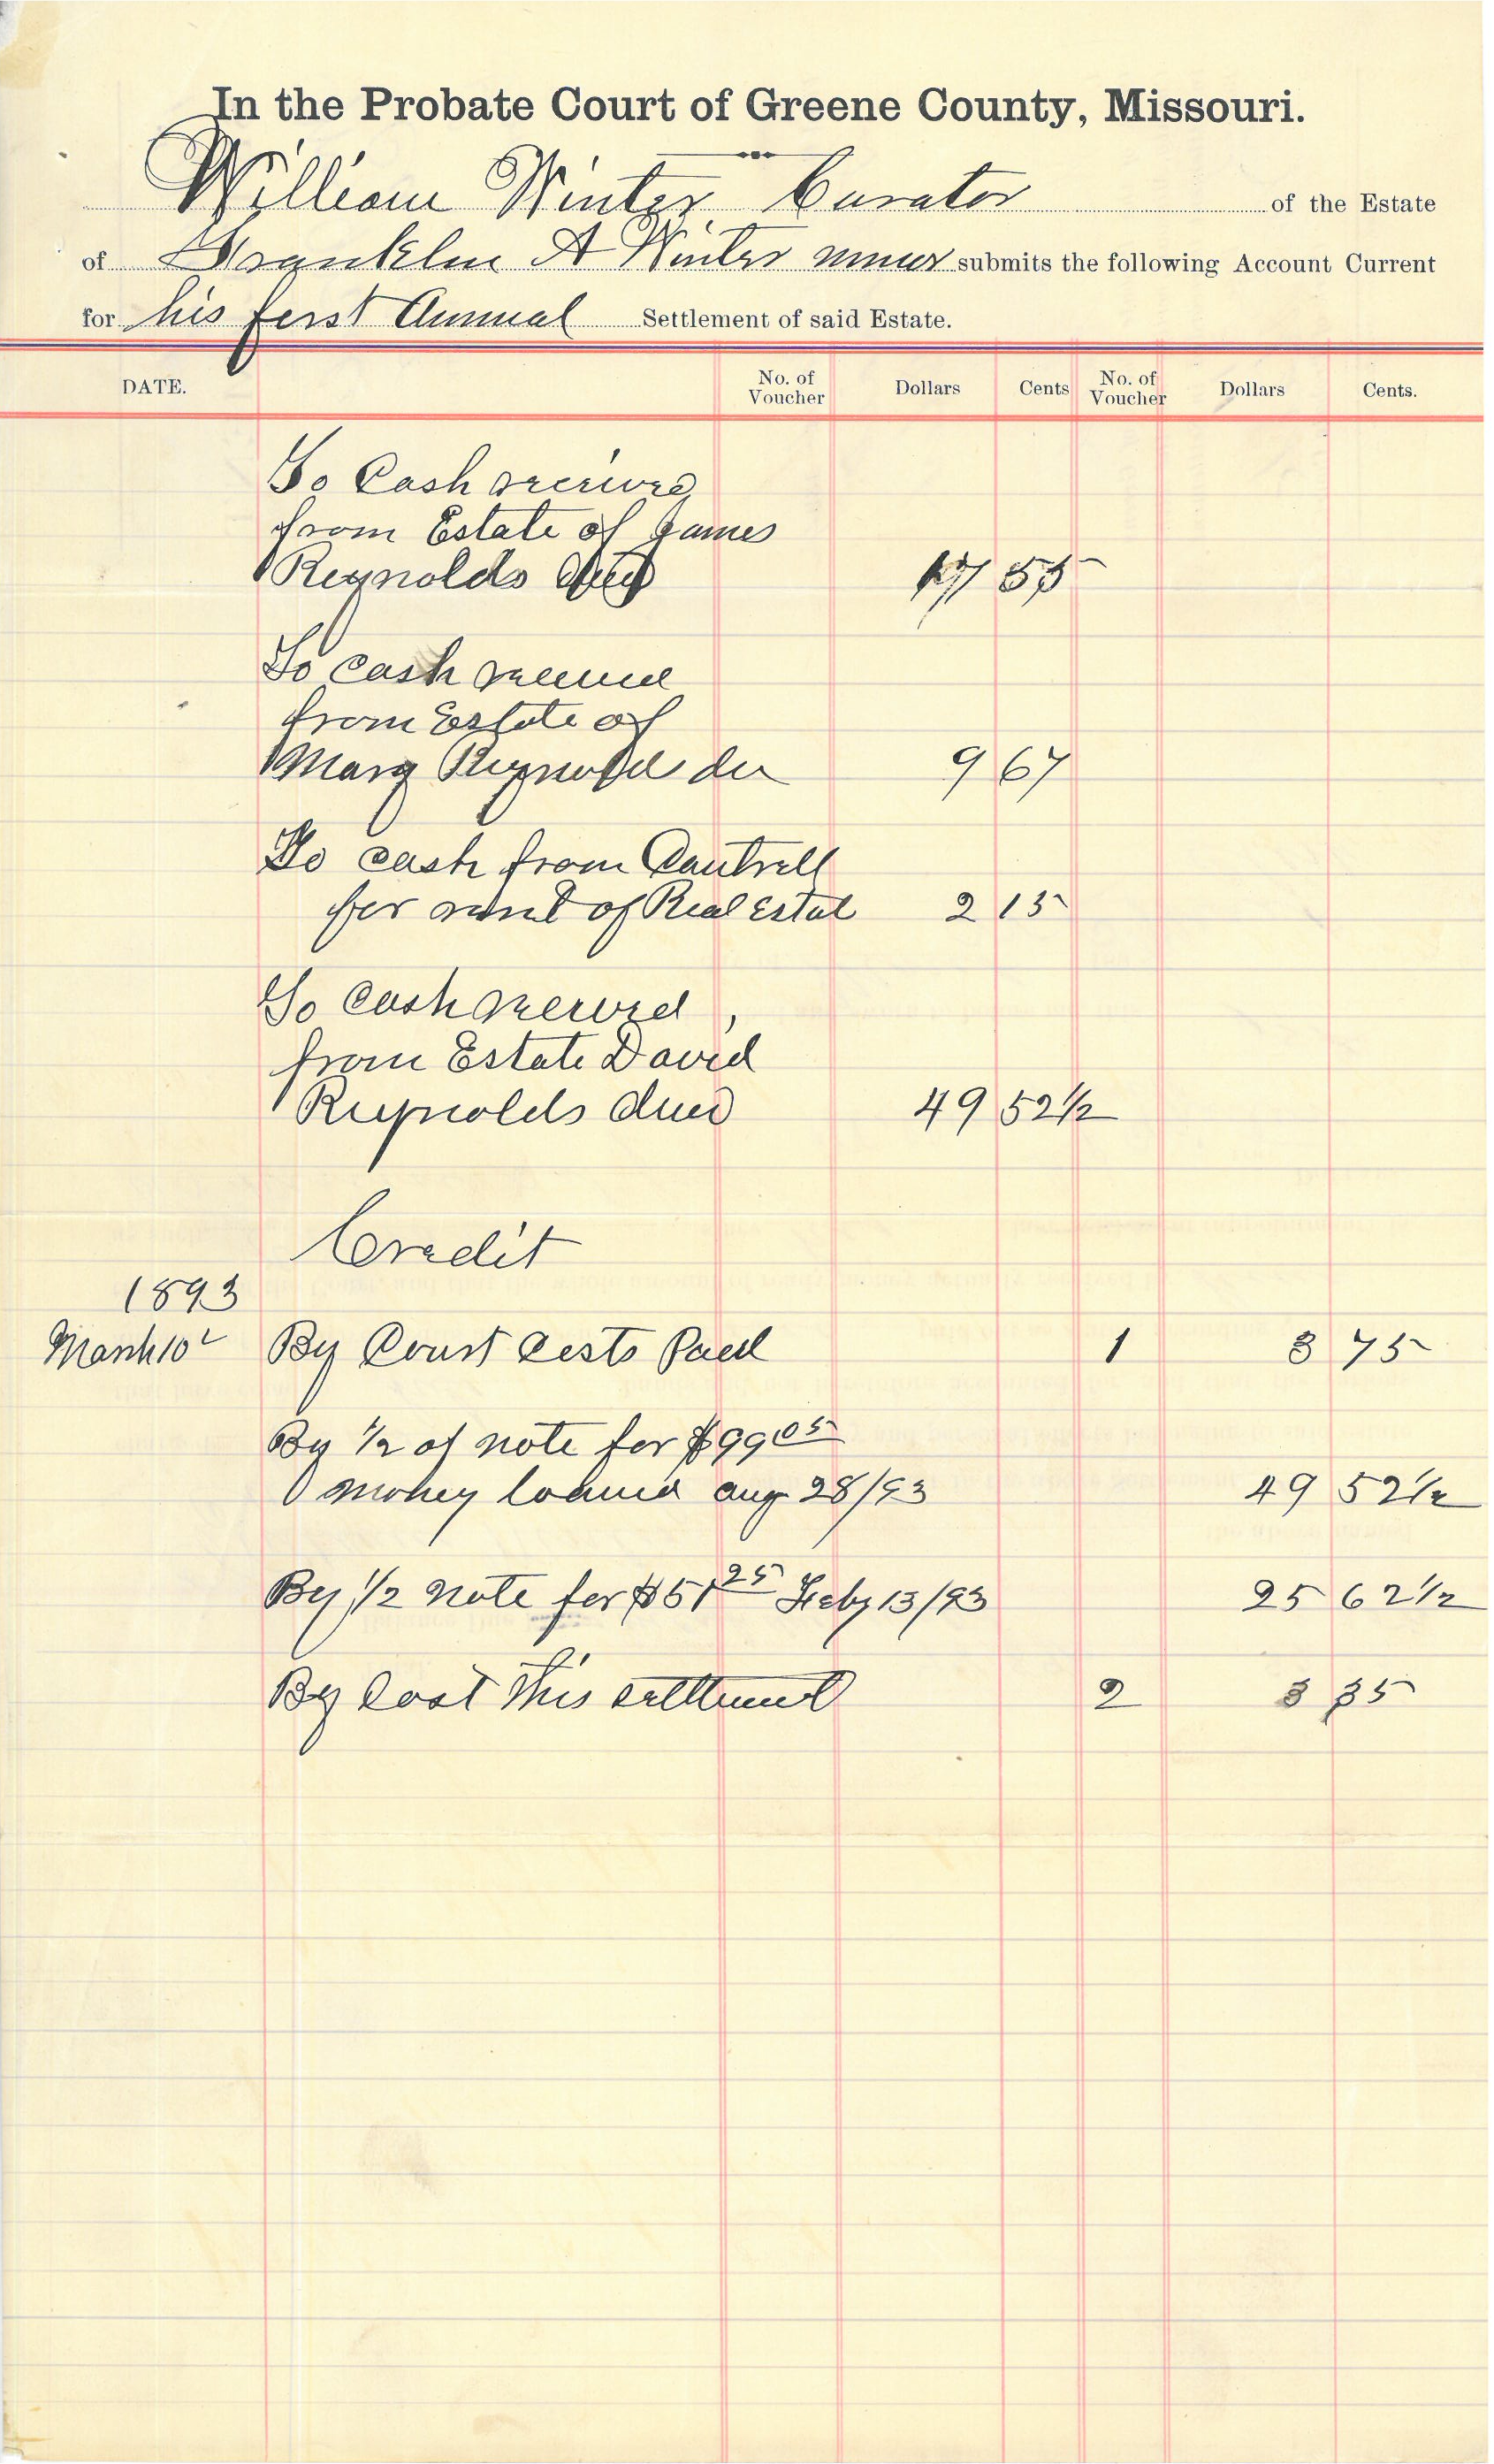 In the Probate Court of Greene County, Missouri.
William Winter Curator of the Estate
of Franklin A Winter minor submits the following Account Current
for his first Annual Settlement of said Estate.
DATE. No. of Voucher Dollars Cents No. of Voucher Dollars Cents.
To Cash received
from Estate of James
Reynolds 55
To cash received
from Estate of
Mary Reynolds 9 67
To cash from Cantrell
for rent of Real Estate 2 15
To Cash received
from Estate David
Reynolds decd 49 52 1/2
Credit
1893
March 10 By Court Costs Paid 1 3 75
By 1/2 of note for $99 05
money loaned aug 28/93 49 52 1/2
By 1/2 note for $51 25 Feby 13/93 25 62 1/2
By Cost this settlement 2 3 35